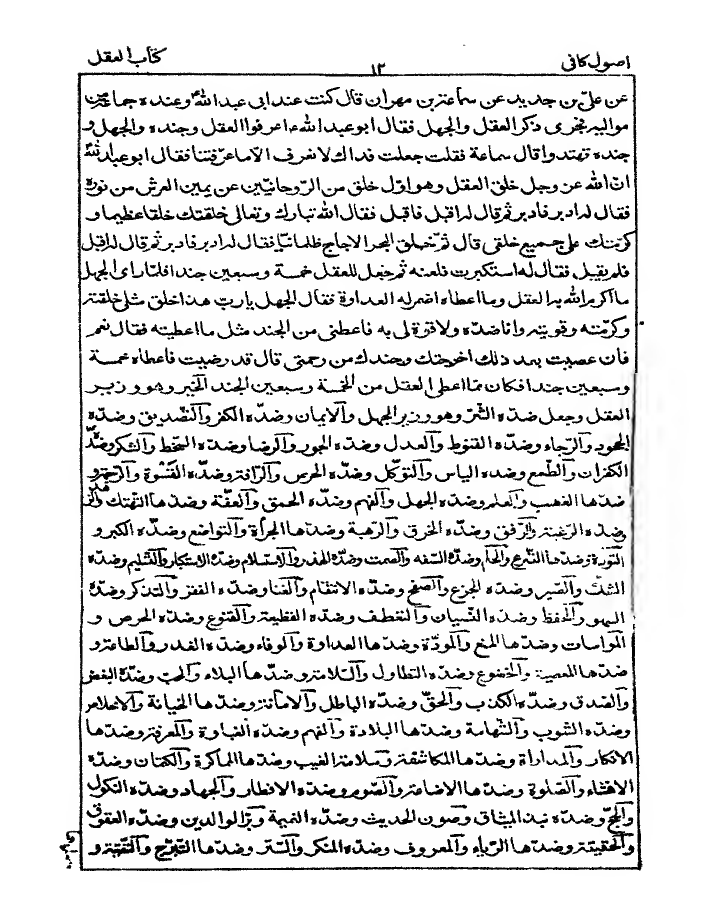 اصول كافى ١٢ كتاب العقل
عن علىّ بن حديد عن سماعة بن مهران قال كنت عند ابى عبد اللهؑ وعنده جماعة من
مواليه فجرى ذكر العقل والجهل فقال ابو عبد الله ؑ اعرفوا العقل وجنده والجهل و
جنده تهتدوا قال سماعة فقلت جعلت فداك لا نعرف الّا ما عرّفتنا فقال ابو عبد اللهؑ
انّ الله عز وجل خلق العقل وهو اوّل خلق من الرّوحانيّين عن يمين العرش من نوره
فقال له ادبر فادبر ثم قال له اقبل فاقبل فقال الله تبارك وتعالى خلقتك خلقا عظيما و
كرّمتك على جميع خلقى قال ثم خلق الجهل من البحر الاجاج ظلمانيّا فقال له ادبر فادبر ثم قال له اقبل
فلم يقبل فقال له استكبرت فلعنه ثم جعل للعقل خمسة وسبعين جندا فلمّا راى الجهل
ما اكرم الله به العقل وما اعطاه اضمر له العداوة فقال الجهل يا ربّ هذا خلق مثلى خلقته
وكرّمته وقوّيته وانا ضدّه ولا قوّة لى به فاعطنى من الجند مثل ما اعطيته فقال نعم
فان عصيت بعد ذلك اخرجتك وجندك من رحمتى قال قد رضيت فاعطاه خمسة
وسبعين جندا فكان ممّا اعطى العقل من الخمسة وسبعين الجند الخير وهو وزير
العقل وجعل ضدّه الشّرّ وهو وزير الجهل والايمان وضدّه الكفر والتّصديق وضدّه
الجحود والرّجاء وضدّه القنوط والعدل وضدّه الجور والرضا وضدّه السّخط والشكر وضدّه
الكفران والطّمع وضده الياس والتوكّل وضدّه الحرص والرّافة وضدّه القسوة والرّحمة و
ضدّها الغضب والعلم وضدّه الجهل والفهم وضدّه الحمق والعفّة وضدّها التّهتك والزّهد
وضدّه الرّغبة والرّفق وضدّه الخرق والرهبة وضدّها الجرأة والتواضع وضدّه الكبر و
التّؤدة وضدّها التّسرّع والحلم وضدّه السّفه والصّمت وضدّه الهذر والاستسلام وضدّه الاستكبار والتّسليم وضدّه
الشّكّ والصّبر وضدّه الجزع والصّفح وضدّه الانتقام والغنا وضدّه الفقر والتّذكّر وضدّه
السهو والحفظ وضدّه النّسيان والتعطّف وضدّه القطيعة والقنوع وضدّه الحرص و
المواساة وضدّها المنع والمودّة وضدّها العداوة والوفاء وضدّه الغدر والطاعة و
ضدّها المعصية والخضوع وضدّه التطاول والسّلامة وضدّها البلاء والحبّ وضدّه البغض
والصّدق وضدّه الكذب والحقّ وضدّه الباطل والامانة وضدّها الخيانة والاخلاص
وضدّه الشّوب والشّهامة وضدّها البلادة والفهم وضدّه الغباوة والمعرفة وضدّها
الانكار والمداراة وضدّها المكاشفة وسلامة الغيب وضدّها المماكرة والكتمان وضدّه
الافشاء والصّلوة وضدّها الاضاعة والصّوم وضدّه الافطار والجهاد وضدّه النكول
والحجّ وضدّه نبذ الميثاق وصون الحديث وضدّه النميمة وبرّ الوالدين وضدّه العقوق
والحقيقة وضدّها الرّياء والمعروف وضدّه المنكر والسّتر وضدّها التبرّج والتّقيّة و